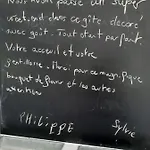 Nous avons passé un super
week end dans ce gîte décoré
avec goût. Tout était parfait
Votre accueil et votre
gentillesse. Merci pour ce magnifique
bouquet de fleurs et les autres
attentions
PHiLiPPE
Sylvie